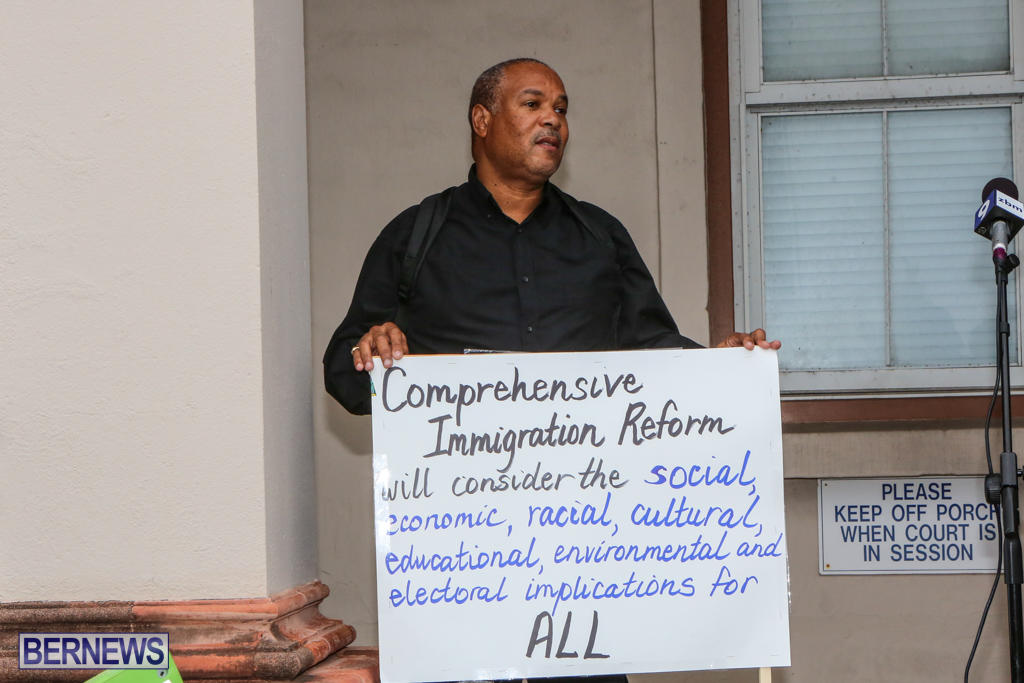 Comprehensive
Immigration Reform
will consider the social,
economic, racial, cultural,
educational, environmental and
electoral implications for
ALL
PLEASE
KEEP OFF PORCH
WHEN COURT IS
IN SESSION
9
zbm
BERNEWS